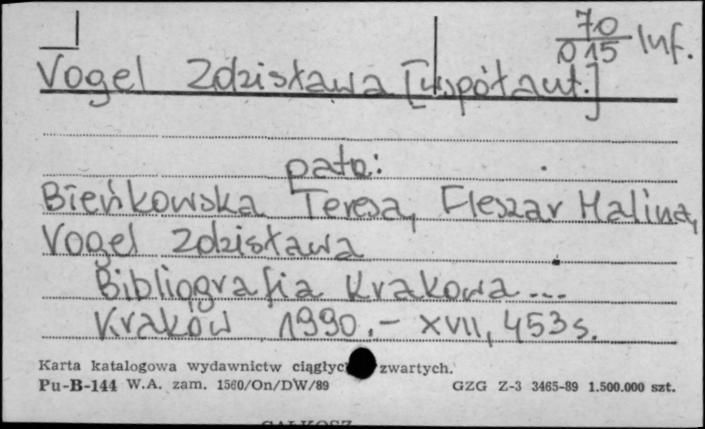 70
015 Inf.
Vogel Zdzisława [współaut.]
patrz:
Bieńkowska Teresa, Fleszar Halina,
Vogel Zdzisława
Bibliografia Krakowa ...
Kraków 1990.- XVII, 453 s.
Karta katalogowa wydawnictw zwartych.
Pu-B-144 W.A. zam. 1560/On/DW/89 GZG Z-3 3465-89 1.500.000 szt.